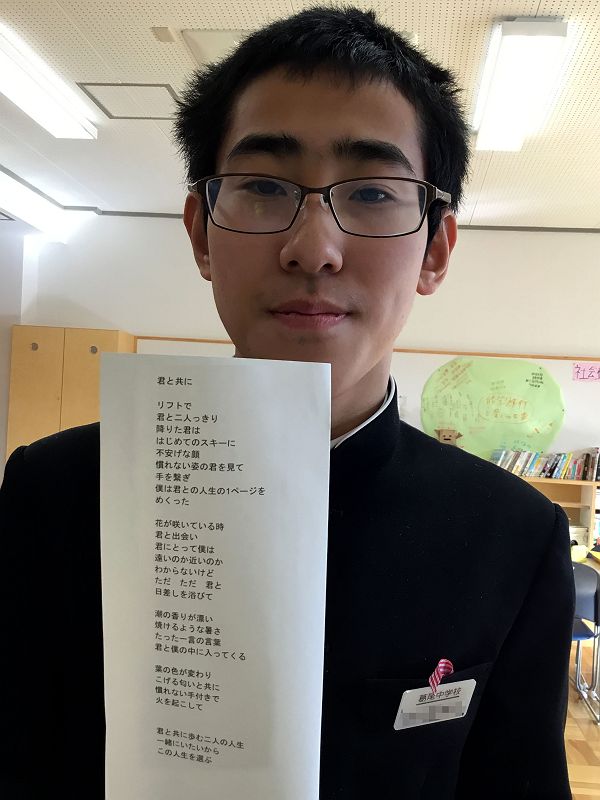 君と共に
リフトで
君と二人っきり
降りた君は
はじめてのスキーに
不安げな顔
慣れない姿の君を見て
手を繋ぎ
僕は君との人生の1ページを
めくった
花が咲いている時
君と出会い
君にとって僕は
遠いのか近いのか
わからないけど
ただ　ただ　君と
日差しを浴びて
潮の香りが漂い
焼けるような暑さ
たった一言の言葉
君と僕の中に入ってくる
葉の色が変わり
こげる匂いと共に
慣れない手付きで
火を起こして
君と共に歩む二人の人生
一緒にいたいから
この人生を選ぶ
葛尾中学校
社会